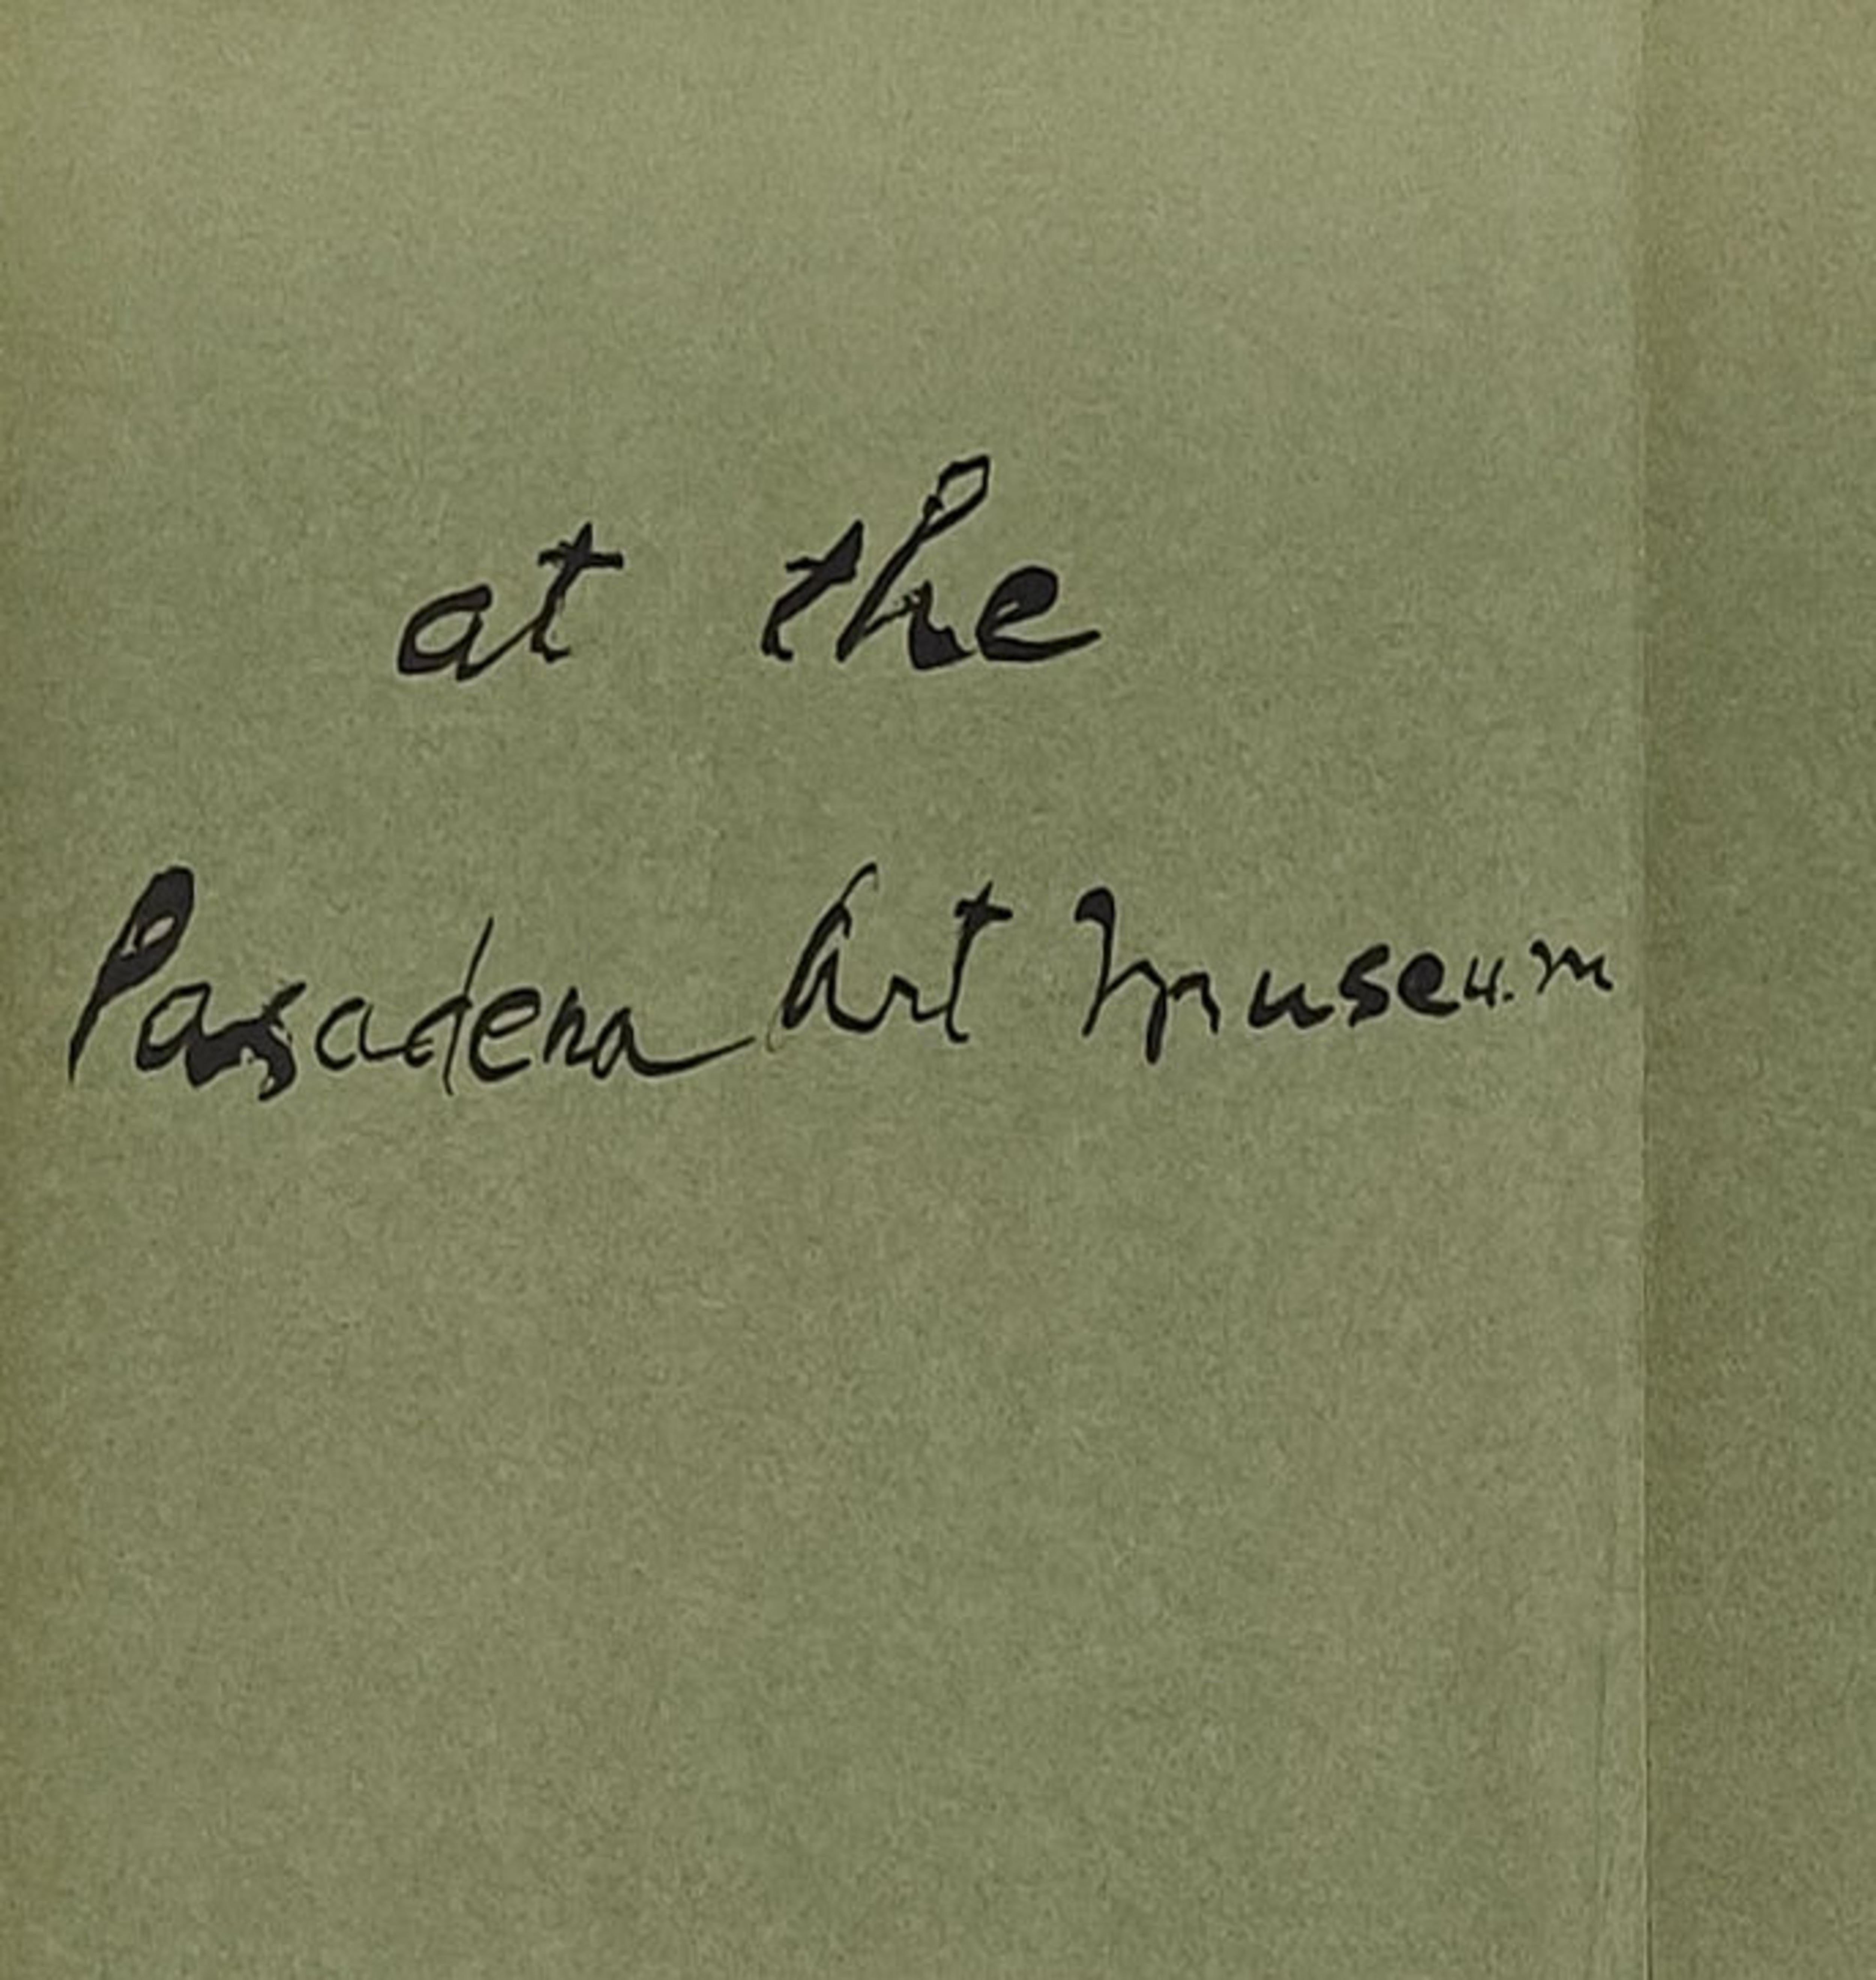 at the
Pasadena Art Museum